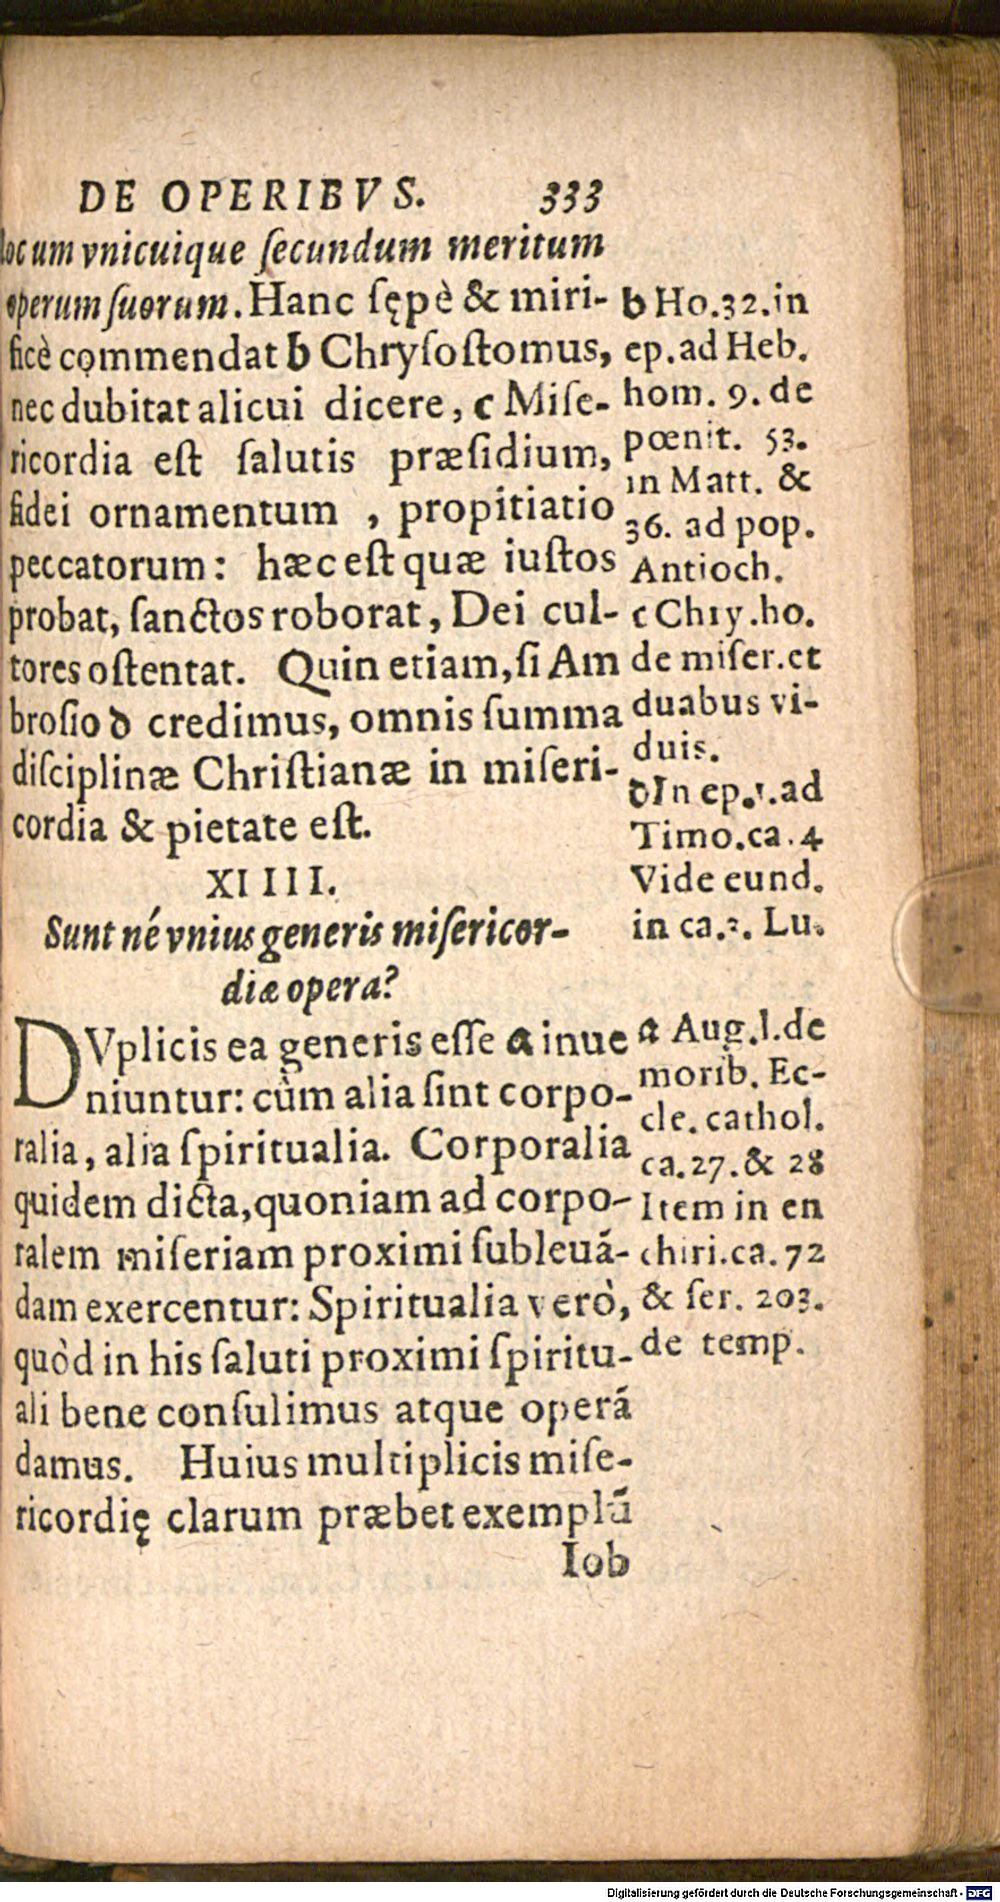 DE OPERIBVS. 333
locum vnicuique ſecundum meritum
operum ſuorum. Hanc ſępè & miri-
ficè commendat b Chryſoſtomus,
nec dubitat alicui dicere, c Miſe-
ricordia eſt ſalutis præſidium,
fidei ornamentum , propitiatio
peccatorum: hæc eſt quæ iuſtos
probat, ſanctos roborat, Dei cul-
tores oſtentat. Quin etiam, ſi Am
broſio d credimus, omnis ſumma
diſciplinæ Chriſtianæ in miſeri-
cordia & pietate eſt.
XIIII.
Sunt né vnius generis miſericor-
diæ opera?
DVplicis ea generis eſſe a inue
niuntur: cùm alia ſint corpo-
ralia, alia ſpiritualia. Corporalia
quidem dicta, quoniam ad corpo-
ralem miſeriam proximi ſubleuã-
dam exercentur: Spiritualia verò,
quòd in his ſaluti proximi ſpiritu-
ali bene conſulimus atque operã
damus. Huius multiplicis miſe-
ricordię clarum præbet exemplũ
Iob
b Ho.32.in
ep.ad Heb.
hom. 9. de
pœnit. 53.
in Matt. &
36. ad pop.
Antioch.
c Chry.ho.
de miſer.et
duabus vi-
duis.
d In ep.1.ad
Timo.ca.4
Vide eund.
in ca. Lu.
a Aug.l.de
morib. Ec-
cle. cathol.
ca.27.& 28
Item in en
chiri.ca.72
& ſer. 203.
de temp.
Digitalisierung gefördert durch die Deutsche Forschungsgemeinschaft - DFG